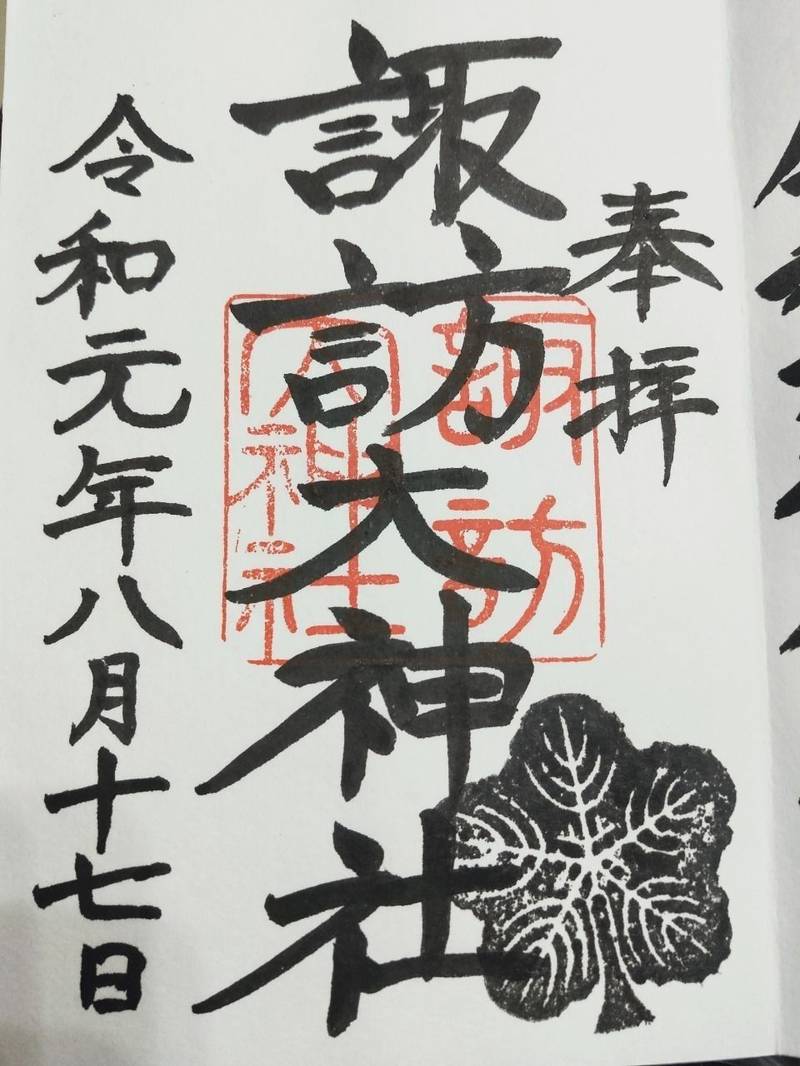 奉拝
諏訪大神社
諏訪
大神社
令和元年八月十七日